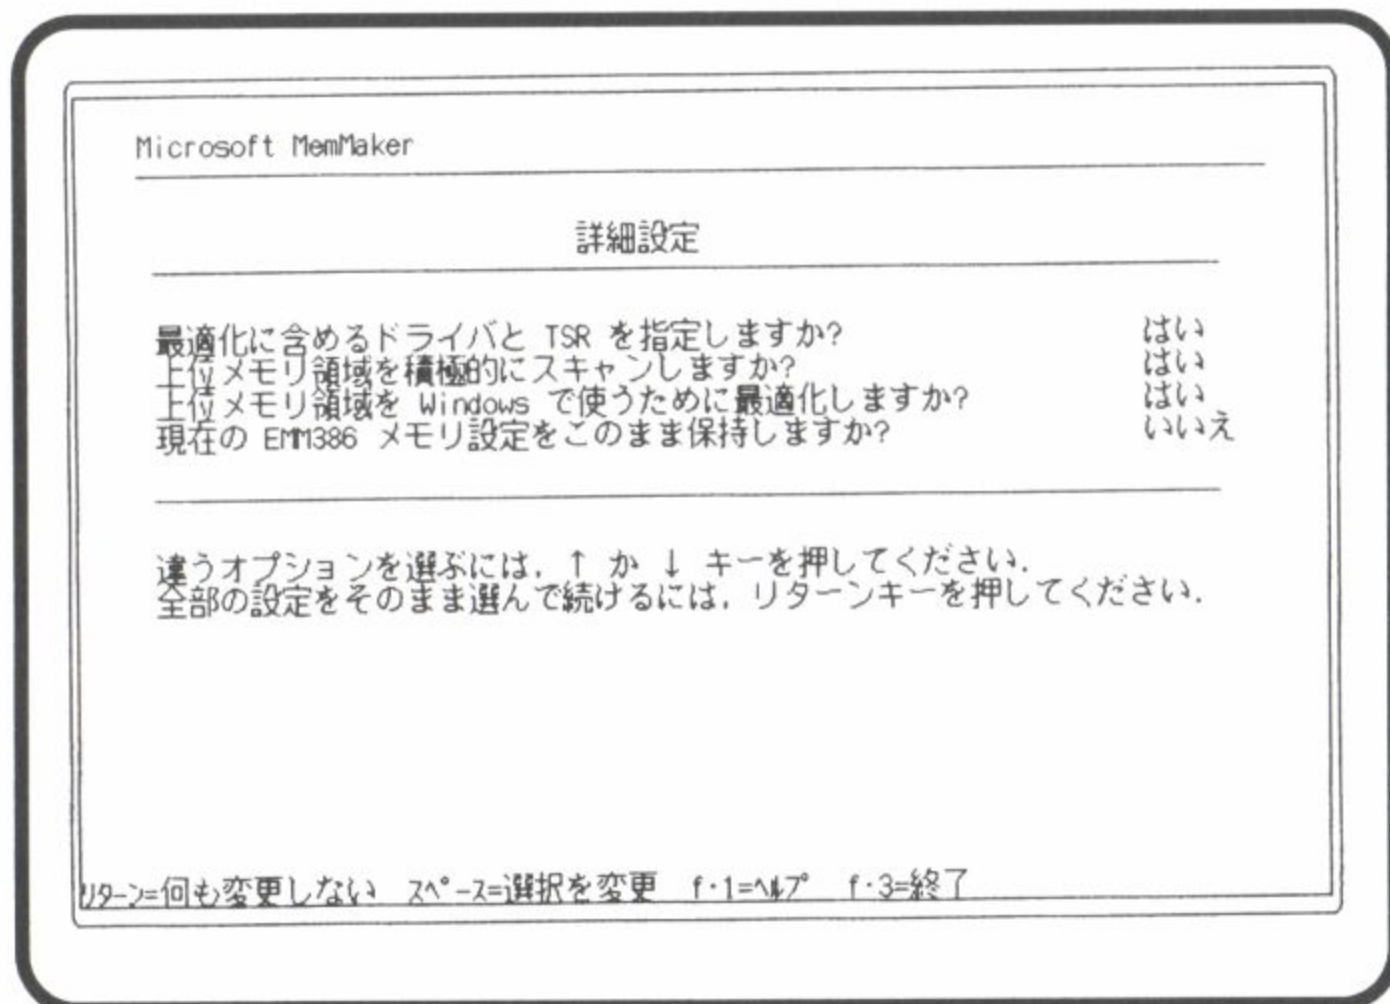 Microsoft MemMaker
詳細設定
最適化に含めるドライバと TSR を指定しますか? はい
上位メモリ領域を積極的にスキャンしますか? はい
上位メモリ領域を Windows で使うために最適化しますか? はい
現在の EMM386 メモリ設定をこのまま保持しますか? いいえ
違うオプションを選ぶには, ↑ か ↓ キーを押してください.
全部の設定をそのまま選んで続けるには, リターンキーを押してください.
ﾘﾀｰﾝ=何も変更しない ｽﾍﾟｰｽ=選択を変更 f･1=ﾍﾙﾌﾟ f･3=終了